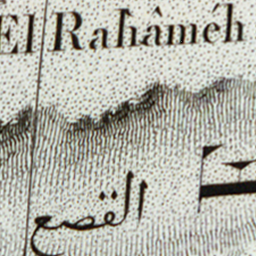 El Rahâméh
القصع